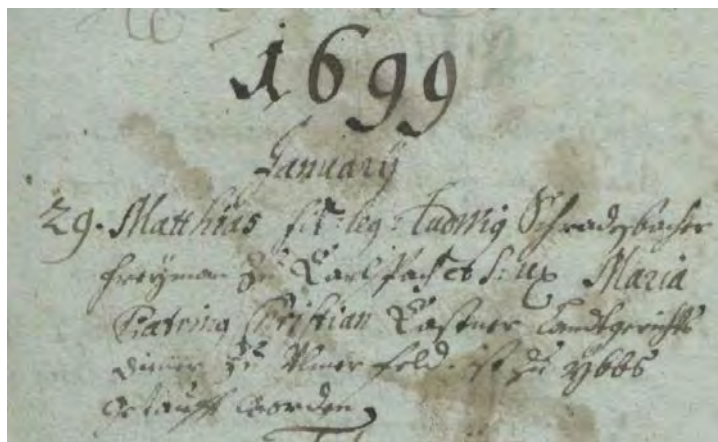 1699
January
29. Matthias fil: leg: Ludwig Schradtbacher
freyman zu Karlspach et S: ux Maria
Patrinus Christian Kastner Landtgerichts
Diener zu Ulmerfeld. ist zu ybbs
getaufft worden